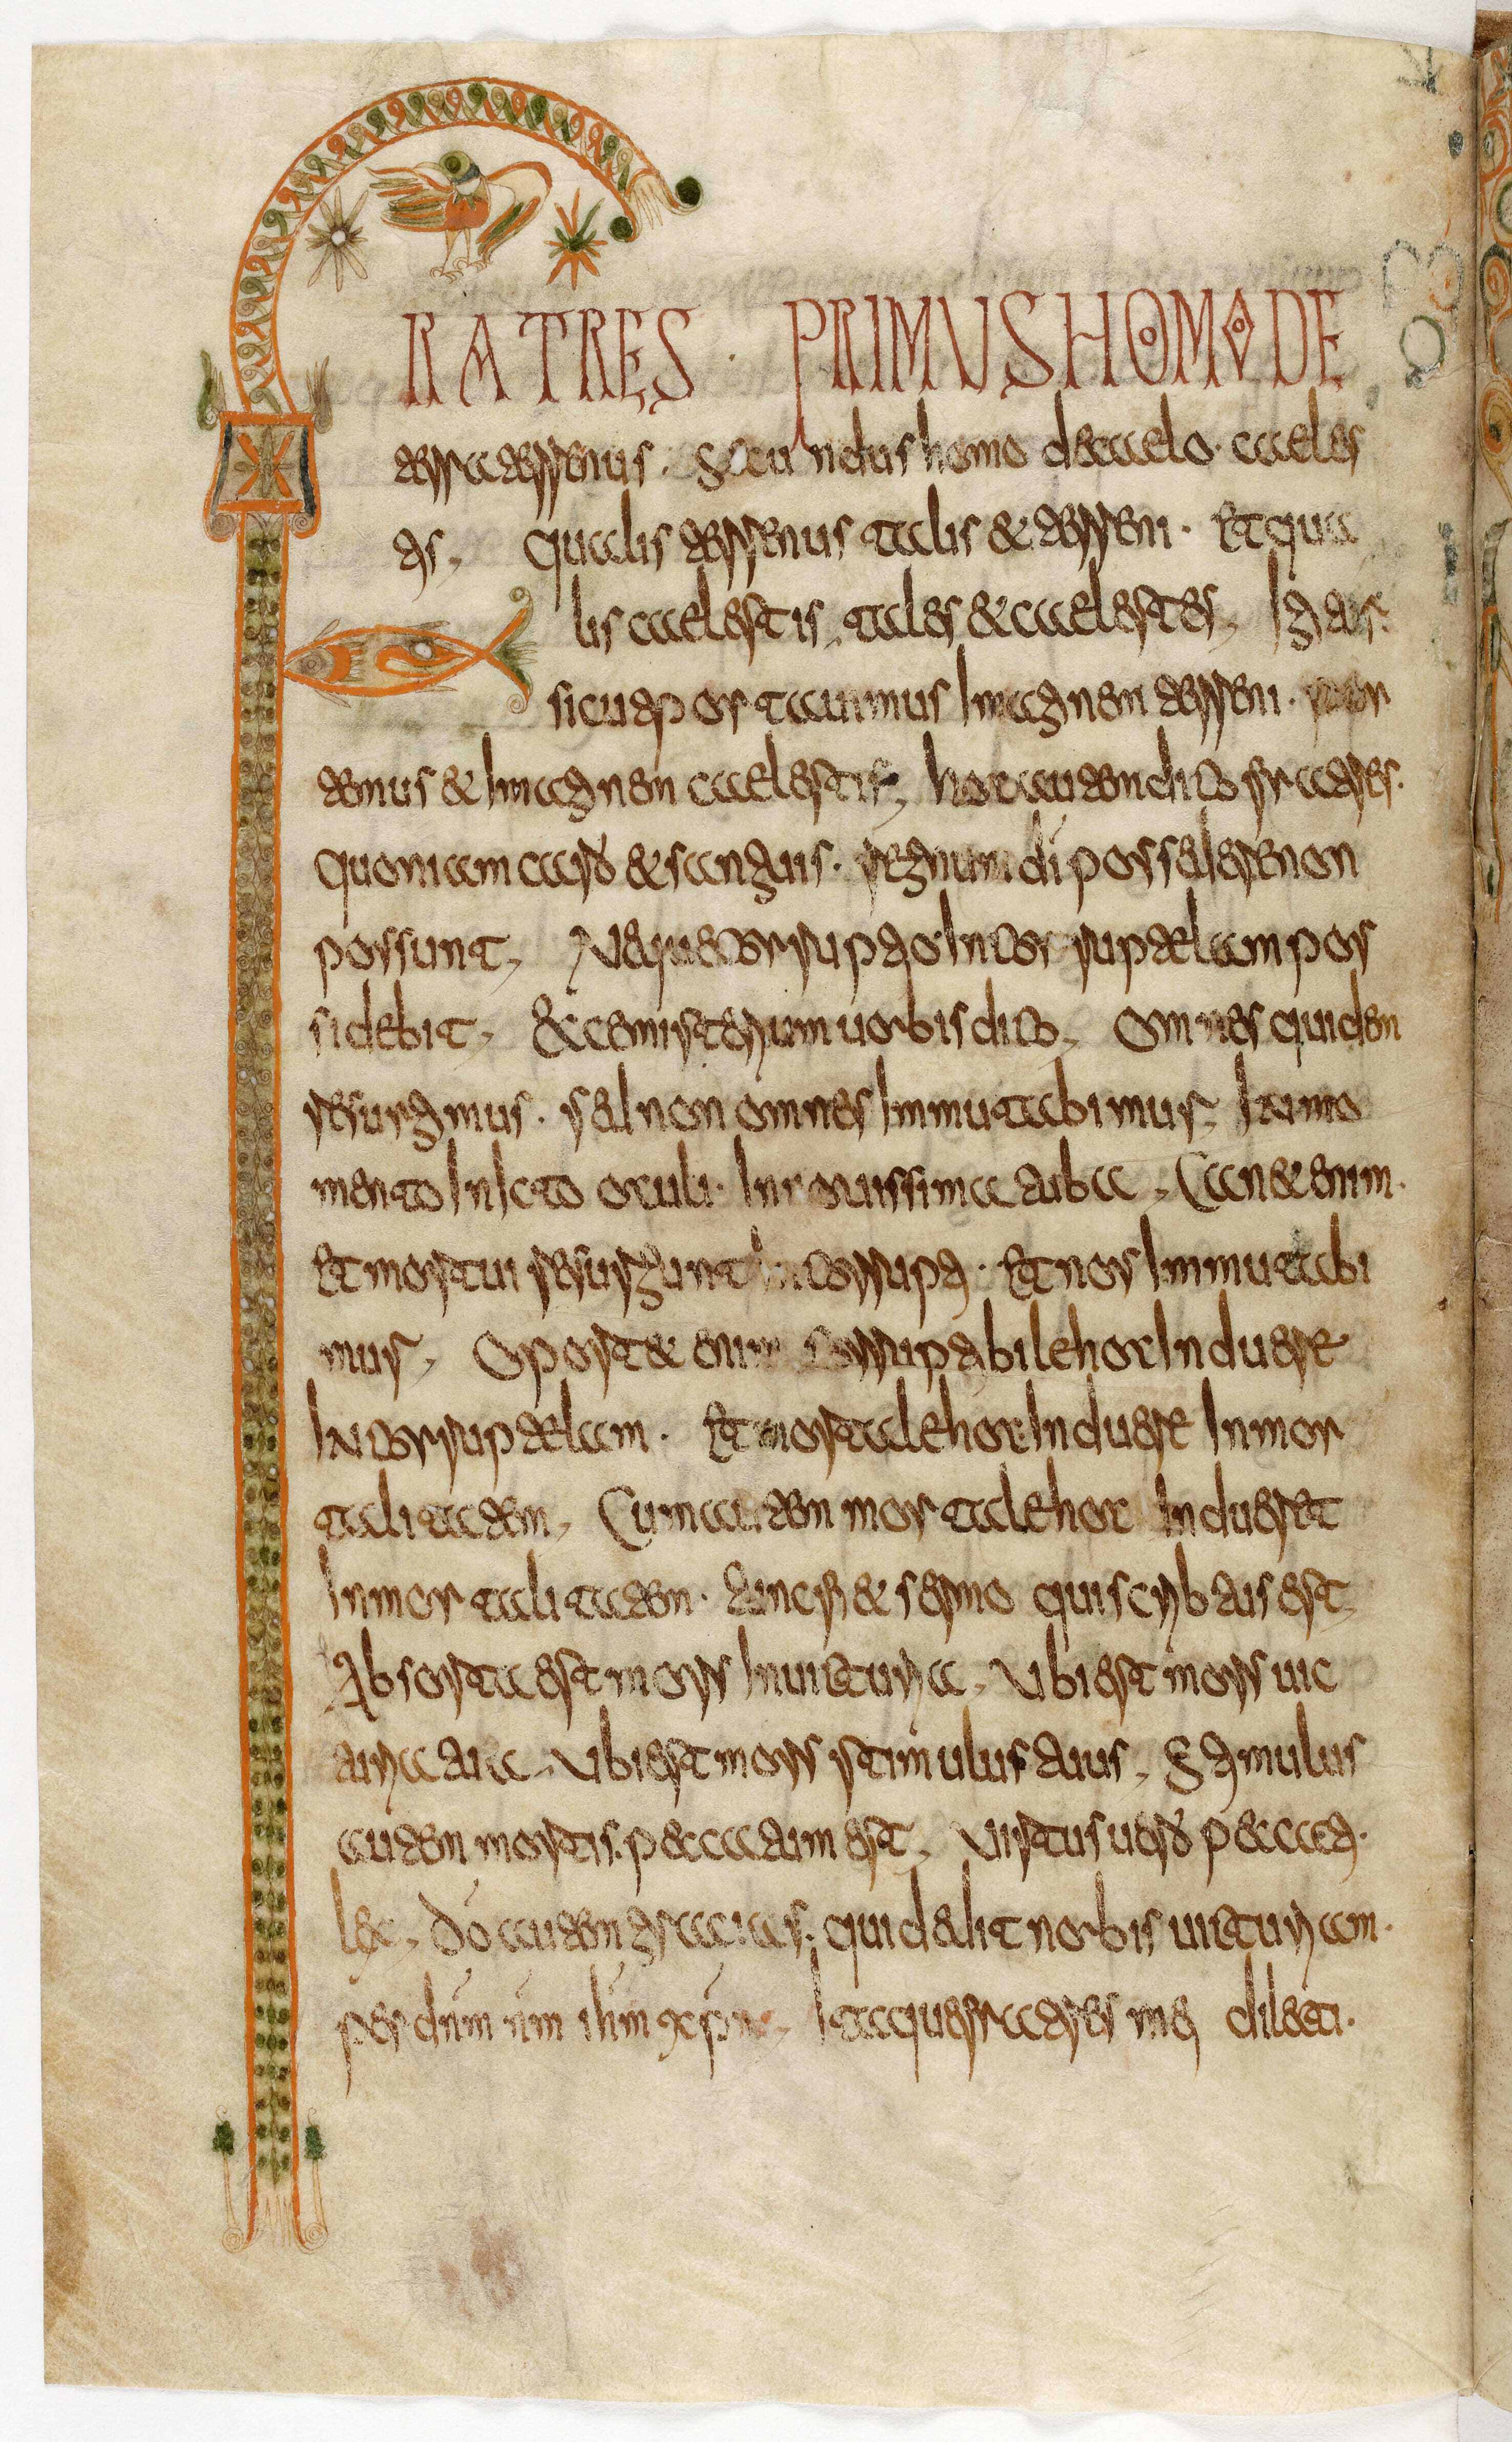 FRATRES · PRIMUS HOMO DE
terra terrenus. Secundus homo de caelo. caeles
tis, Qualis terrenus talis & terreni. Et qua
lis caelestis, tales & caelestes, Igitur
sicut portauimus Imaginem terreni. por
temus & Imaginem caelestis, hoc autem dico fratres.
quoniam caro & sanguis. regnum di possedere non
possunt, Neque corruptio Incorruptelam pos
sidebit, Ecce misterium uobis dico, Omnes quidem
resurgimus. sed non omnes Immutabimur, In mo
mento In icto oculi. In nouissima tuba, Canet enim.
Et mortui resurgunt Incorrupti. Et nos Immutabi
mur, Oportet enim corruptibile hoc Induere
Incorruptelam. Et mortale hoc Induere Inmor
talitatem, Cum autem mortale hoc Induerit
Inmortalitatem. tunc fiet sermo qui scribtus est,
Absorta est mors In uicturia, Ubi est mors uic
turia tua, Ubi est mors stimulus tuus, Stimulus
autem mortis. peccatum est, Uirtus uero peccati.
lex, do autem gracias. qui dedit nobis uicturiam.
per dnm nm ihm xpm, Itaque fratres mei dilecti.